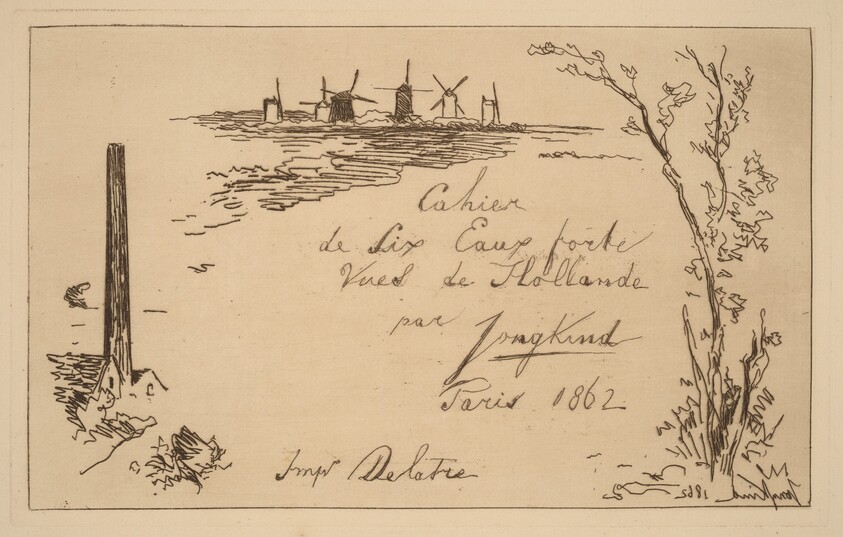 Cahier
de Six Eaux forte
Vues de Hollande
par Jongkind
Paris 1862
Imp Delatre
Jongkind 1862